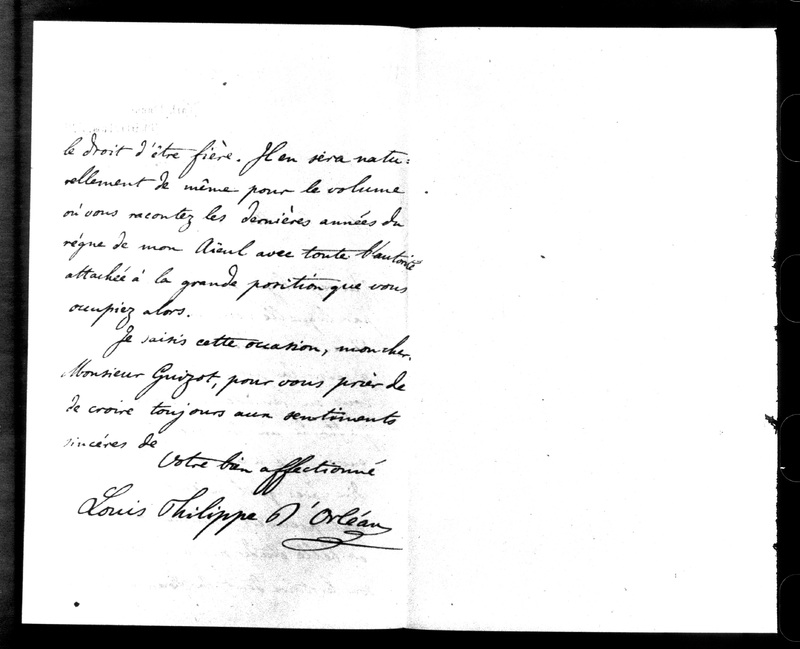 le droit d'être fière. Il en sera natu=
rellement de même pour le volume
où vous racontez les dernières années du
règne de mon Aïeul avec toute l'autorité
attachée à la grande position que vous
occupiez alors.
Je saisis cette occasion, mon cher
Monsieur Guizot, pour vous prier de
de croire toujours aux sentiments
sincéres de
Votre bien affectionné
Louis Philippe d'Orléans